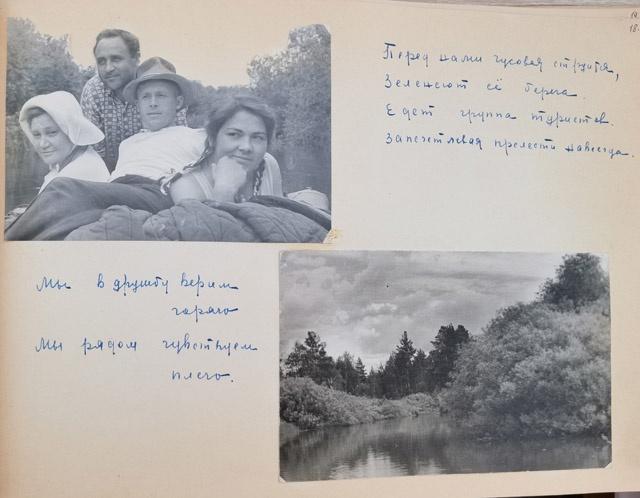 Перед нами чусовая струится,
Зеленеют её берега.
Едет группа туристов.
Запечетлевая прелести навсегда.
Мы в дружбу верим
горячо
Мы рядом чувствуем
плечо.